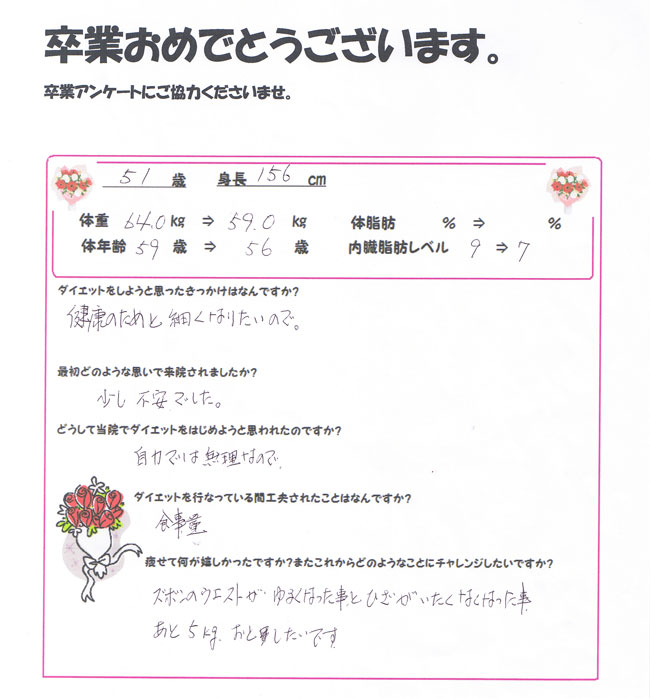 卒業おめでとうございます。
卒業アンケートにご協力くださいませ。
51 歳 身長 156 cm
体重 64.0 kg ⇒ 59.0 kg 体脂肪 % ⇒ %
体年齢 59 歳 ⇒ 56 歳 内臓脂肪レベル 9 ⇒ 7
ダイエットをしようと思ったきっかけはなんですか?
健康のためと 細くなりたいので。
最初どのような思いで来院されましたか?
少し 不安でした。
どうして当院でダイエットをはじめようと思われたのですか?
自力では無理なので
ダイエットを行なっている間工夫されたことはなんですか?
食事量
痩せて何が嬉しかったですか?またこれからどのようなことにチャレンジしたいですか?
ズボンのウエストが ゆるくなった事と ひざがいたくなくなった事
あと 5kg おとしたいです